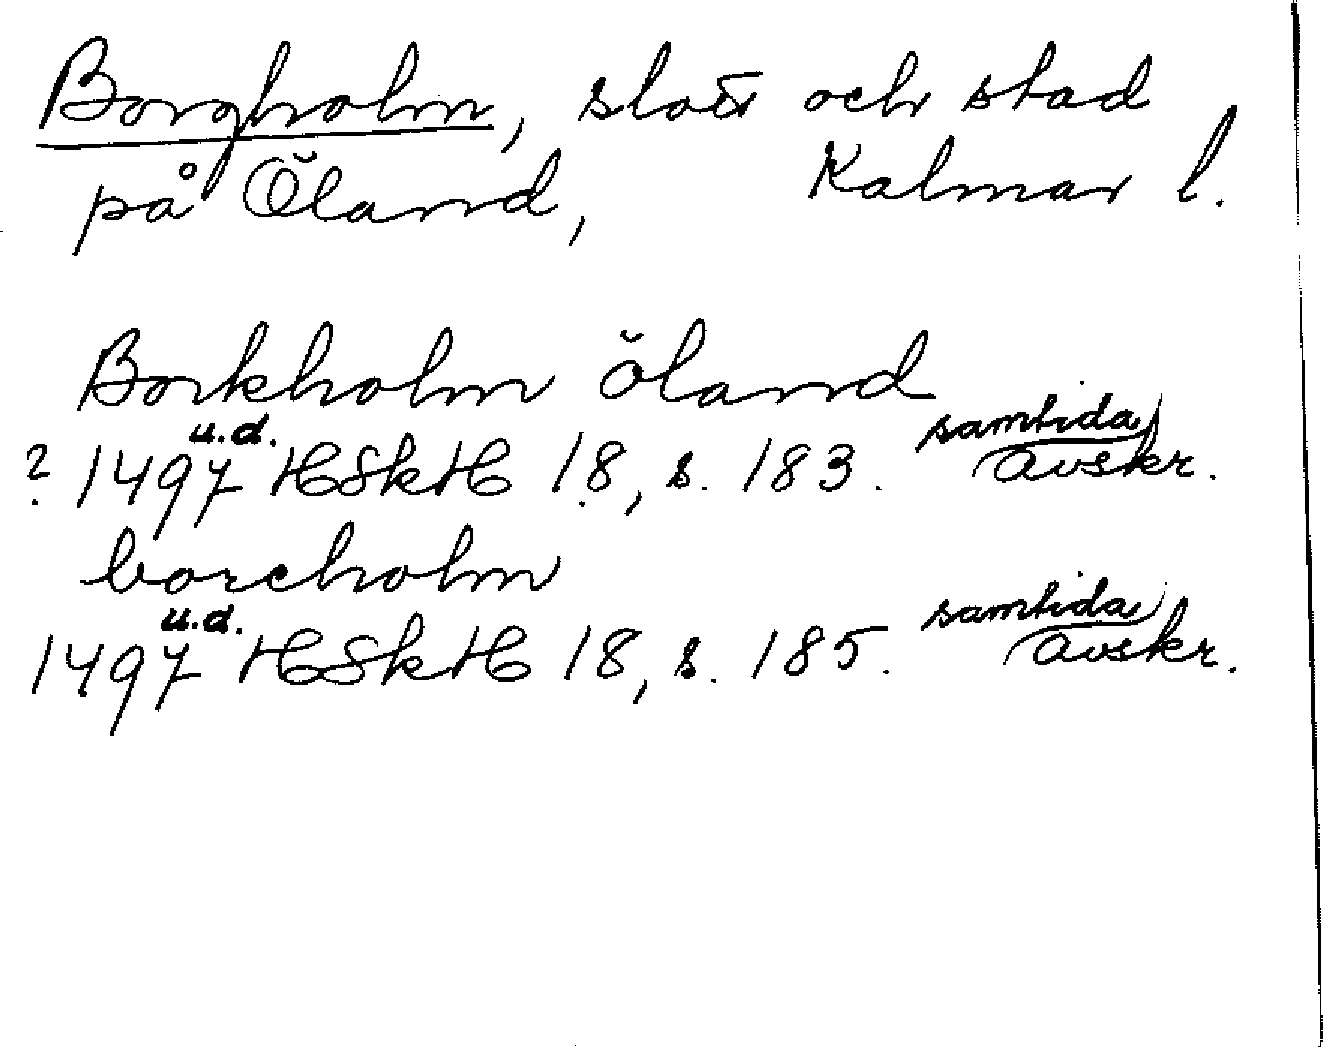 Borgholm, slott och stad
på Öland, Kalmar l.
Borkholm öland
? 1497 u.d. HSkH 18, s. 183. samtida avskr.
borcholm
1497 u.d. HSkH 18, s. 185. samtida avskr.